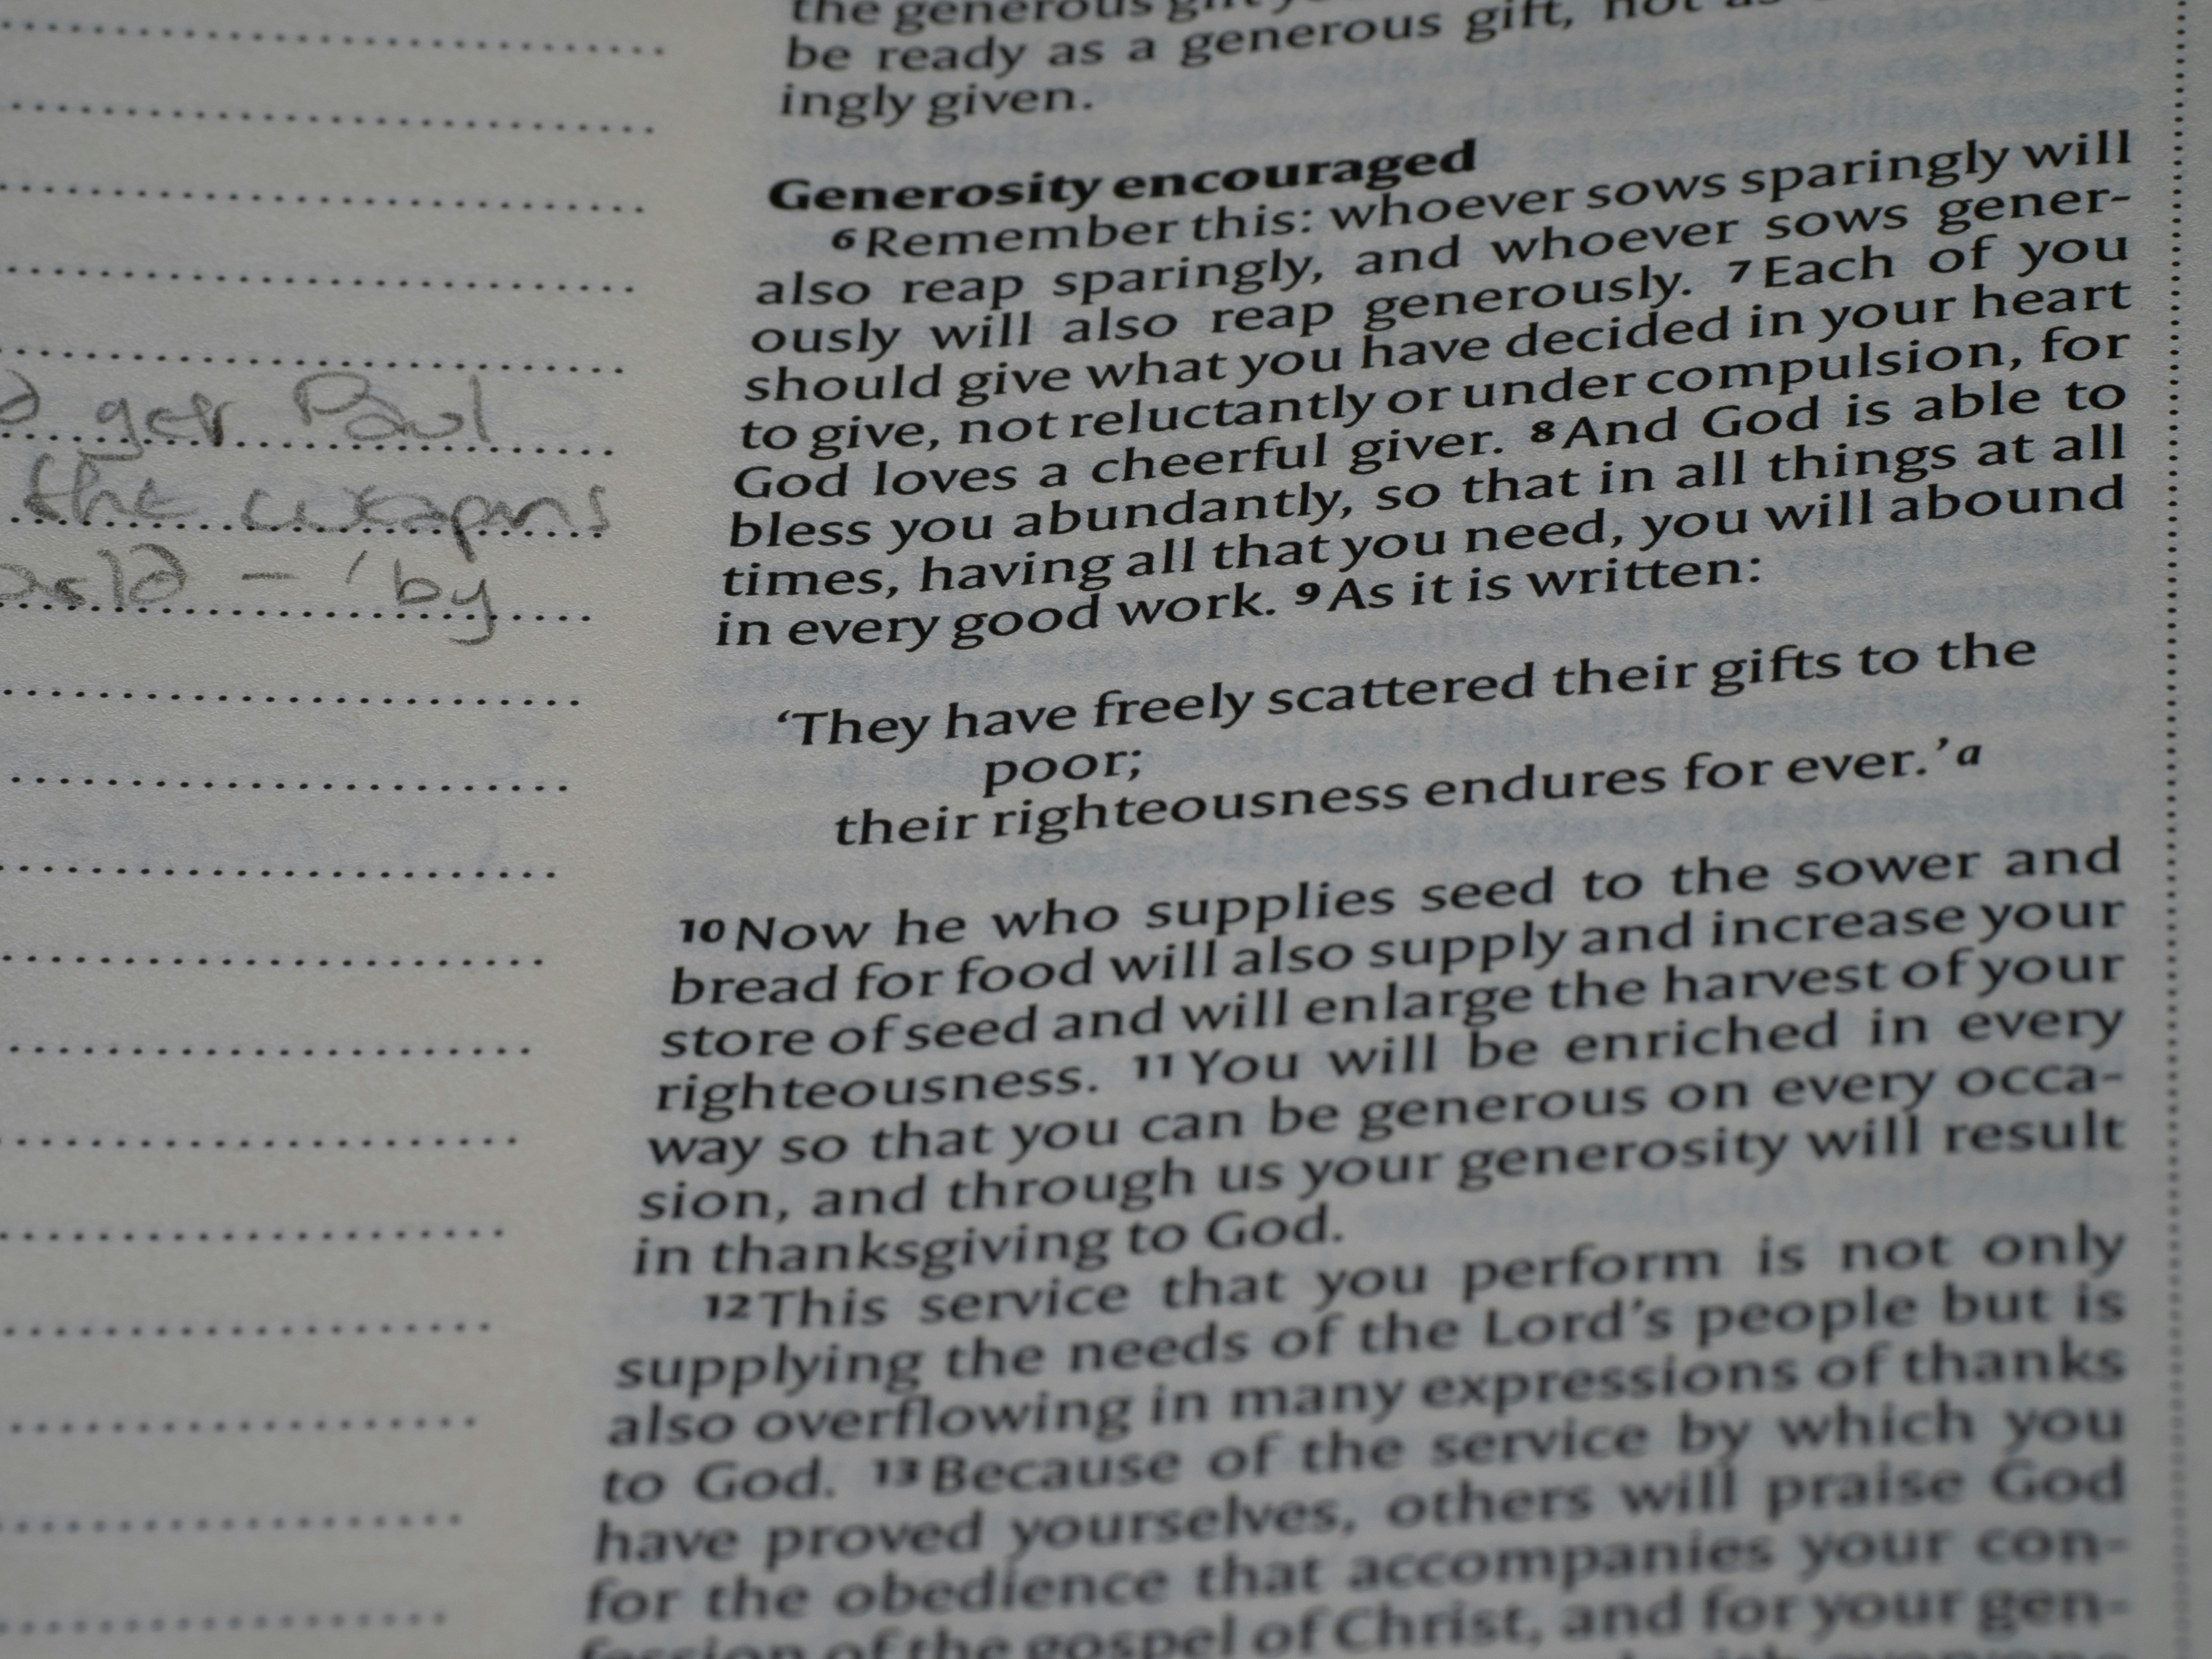 ger Paul
the weapons
– 'by
the generous
be ready as a generous gift, not as
ingly given.
Generosity encouraged
6 Remember this: whoever sows sparingly will
also reap sparingly, and whoever sows gener-
ously will also reap generously. 7 Each of you
should give what you have decided in your heart
to give, not reluctantly or under compulsion, for
God loves a cheerful giver. 8 And God is able to
bless you abundantly, so that in all things at all
times, having all that you need, you will abound
in every good work. 9 As it is written:
‘They have freely scattered their gifts to the
poor;
their righteousness endures for ever.’ a
10 Now he who supplies seed to the sower and
bread for food will also supply and increase your
store of seed and will enlarge the harvest of your
righteousness. 11 You will be enriched in every
way so that you can be generous on every occa-
sion, and through us your generosity will result
in thanksgiving to God.
12 This service that you perform is not only
supplying the needs of the Lord’s people but is
also overflowing in many expressions of thanks
to God. 13 Because of the service by which you
have proved yourselves, others will praise God
for the obedience that accompanies your con-
fession of the gospel of Christ, and for your gen-